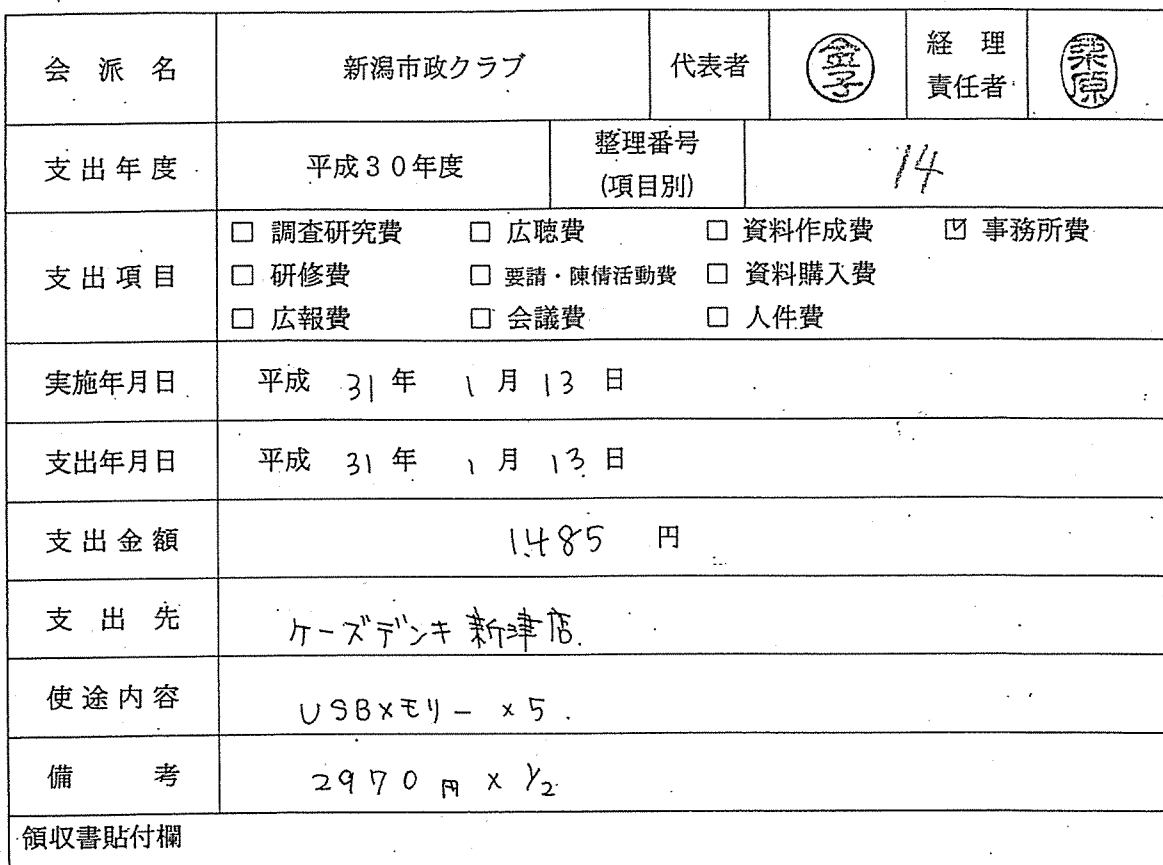 会派名 新潟市政クラブ 代表者 金子 経理責任者 栗原
支出年度 平成30年度 整理番号(項目別) 14
支出項目
□ 調査研究費 □ 広聴費 □ 資料作成費 ☑ 事務所費
□ 研修費 □ 要請・陳情活動費 □ 資料購入費
□ 広報費 □ 会議費 □ 人件費
実施年月日 平成 31年 1月 13日
支出年月日 平成 31年 1月 13日
支出金額 1,485 円
支出先 ケーズデンキ新津店.
使途内容 USBメモリー ×5.
備考 2970円 × 1/2
領収書貼付欄